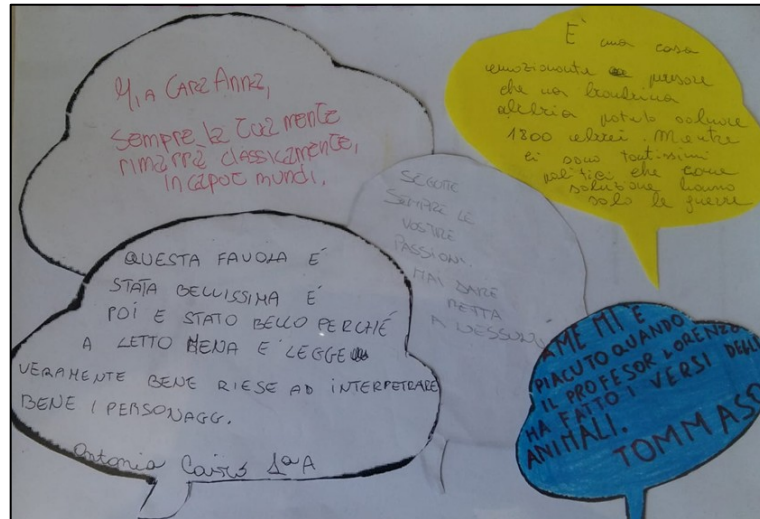 MIA CARA ANNA,
SEMPRE LA TUA MENTE
RIMARRÀ CLASSICAMENTE,
IN CAPUT MUNDI.
È una cosa
emozionante pensare
che una bambina
abbia potuto salvare
1800 ebrei. Mentre
ci sono tantissimi
politici che come
soluzione hanno
solo le guerre
SEGUITE
SEMPRE LE
VOSTRE
PASSIONI.
MAI DARE
RETTA
A NESSUNO
QUESTA FAVOLA É
STATA BELLISSIMA É
POI E STATO BELLO PERCHÉ
A LETTO MENA E LEGGE
VERAMENTE BENE RIESE AD INTERPETRARE
BENE I PERSONAGG.
Antonia 1ª A
A ME MI E
PIACUTO QUANDO
IL PROFESOR LORENZO
HA FATTO I VERSI DEGLI
ANIMALI.
TOMMASO